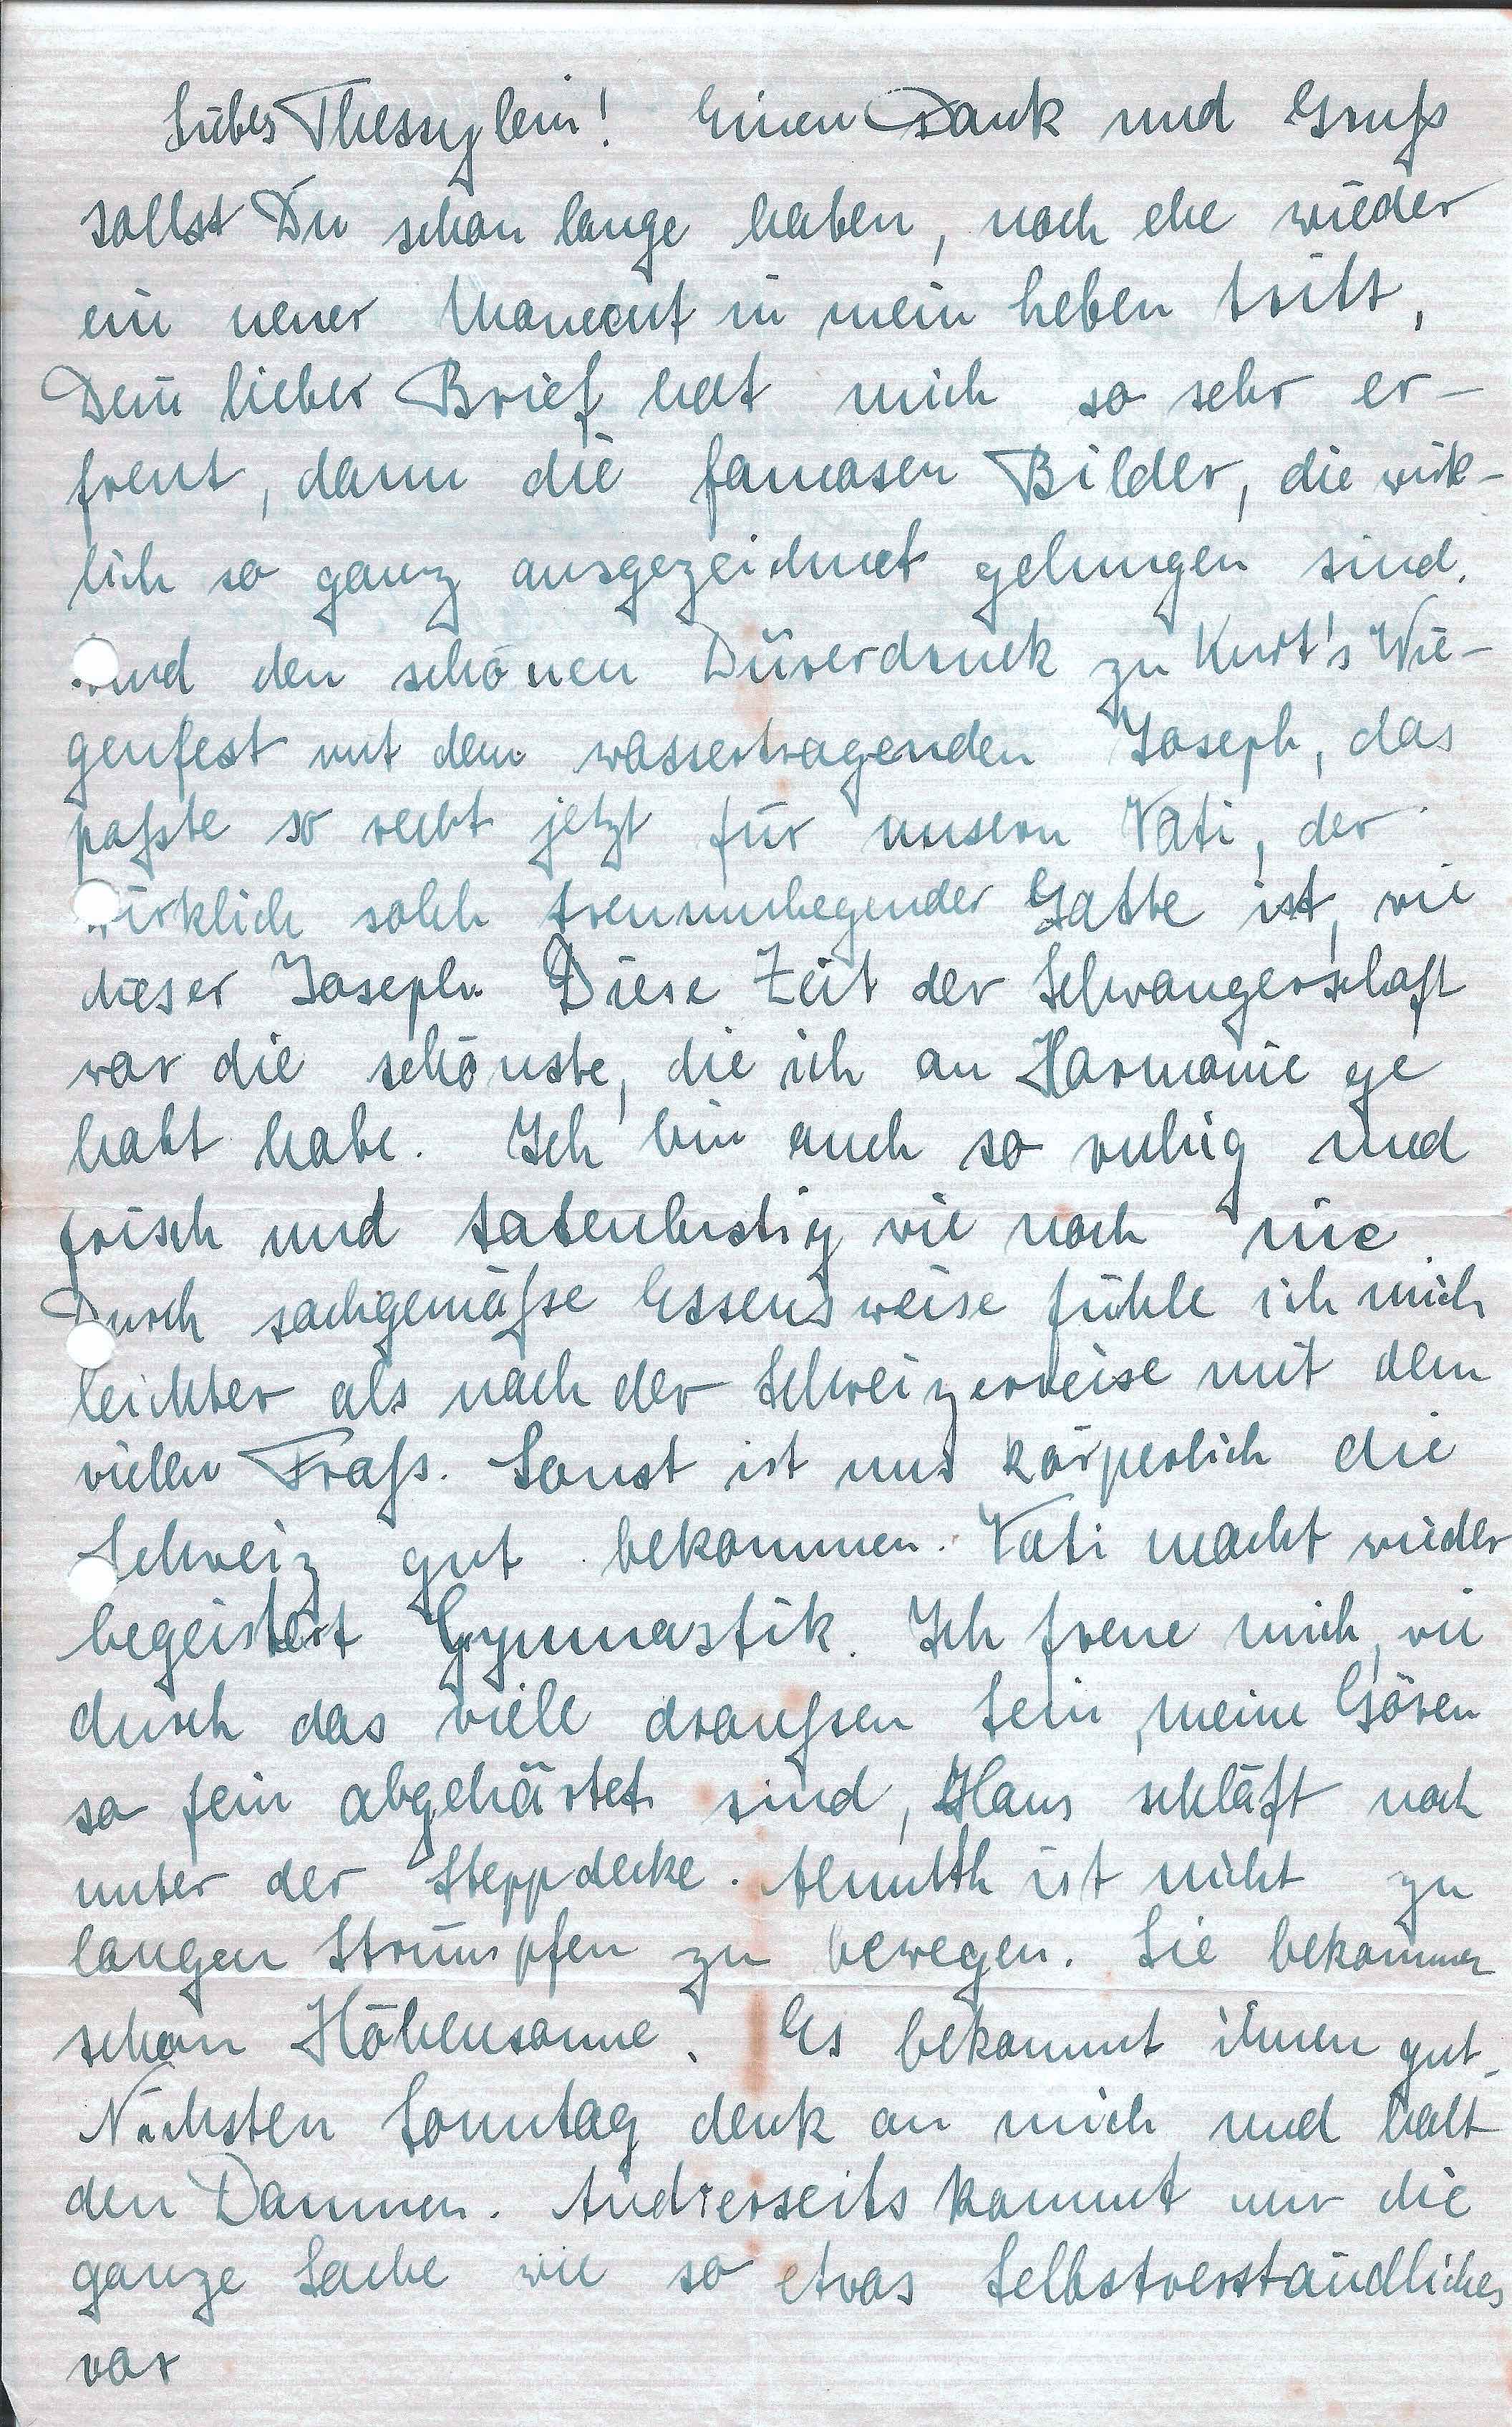 Liebes Thessylein! Einen Dank und Gruß
sollst Du schon lange haben, noch ehe wieder
ein neuer Moment in mein Leben tritt,
Dein lieber Brief hat mich so sehr er-
freut, dann die famosen Bilder, die wirk-
lich so ganz ausgezeichnet gelungen sind.
und den schönen Dürerdruck zu Kurt's Wie-
genfest mit dem wassertragenden Joseph, das
paßte so recht jetzt für unsern Vati, der
wirklich solch treuumhegender Gatte ist, wie
dieser Joseph. Diese Zeit der Schwangerschaft
war die schönste, die ich an Harmonie ge
habt habe. Ich bin auch so ruhig und
frisch und tatenlustig wie noch nie.
Durch sachgemäße Essensweise fühle ich mich
leichter als nach der Schweizerreise mit dem
vielen Fraß. Sonst ist uns körperlich die
Schweiz gut bekommen. Vati macht wieder
begeistert Gymnastik. Ich freue mich, wie
durch das viele draußen Sein, meine Gören
so fein abgehärtet sind, Hans schläft noch
unter der Steppdecke. Almuth ist nicht zu
langen Strümpfen zu bewegen. Sie bekommen
schon Höhensonne. Es bekommt ihnen gut.
Nächsten Sonntag denk an mich und halt
den Daumen. Andrerseits kommt mir die
ganze Sache wie so etwas Selbstverständliches
vor